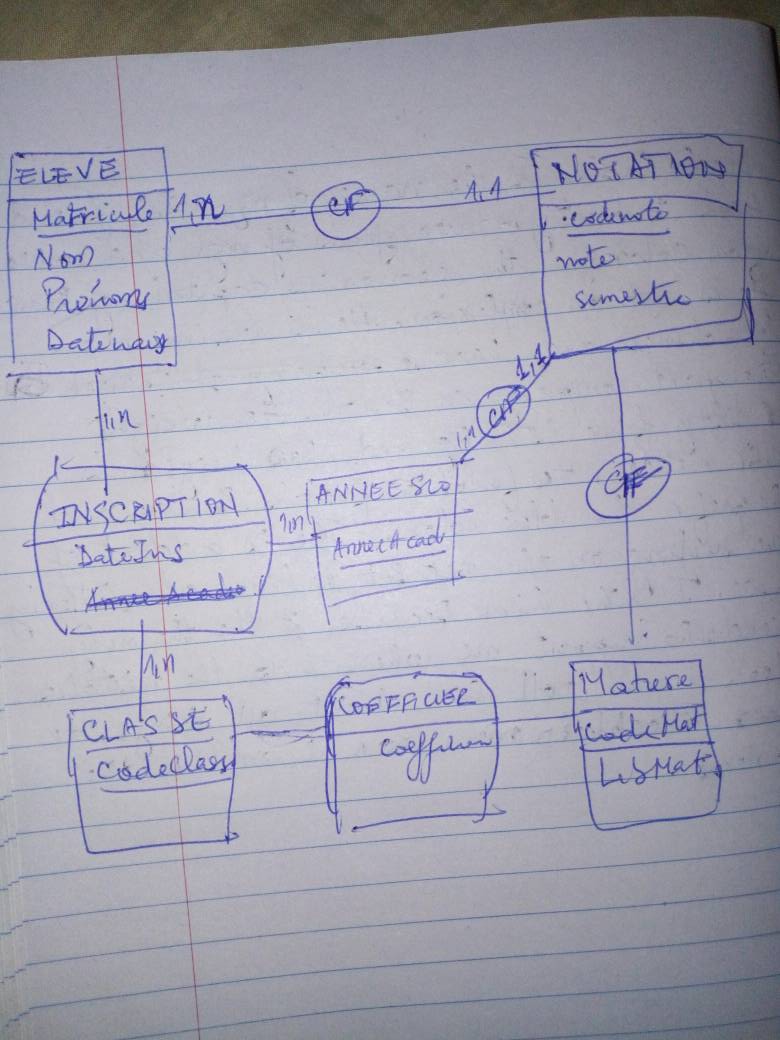 ELEVE
Matricule
Nom
Prénoms
Datenais
1,n
CIF
1,1
NOTATION
codenote
note
semestre
1,n
1,1
CIF
1,n
CIF
INSCRIPTION
DateIns
Annee Acade
1,n
ANNEESCO
AnneeAcad
1,n
CLASSE
CodeClass
COEFFICIER
Coefficien
Matiere
CodeMat
LibMat